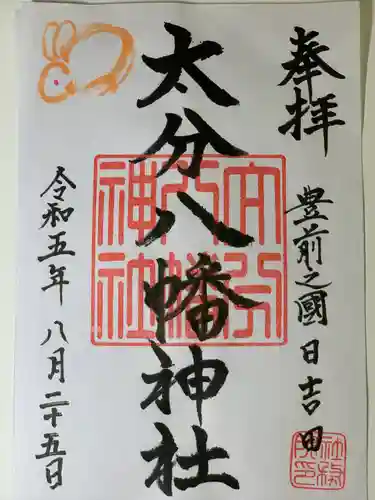 奉拝
豊前之國 日吉田
太分八幡神社
令和五年 八月二十五日
太分
八幡
神社
社務
所印